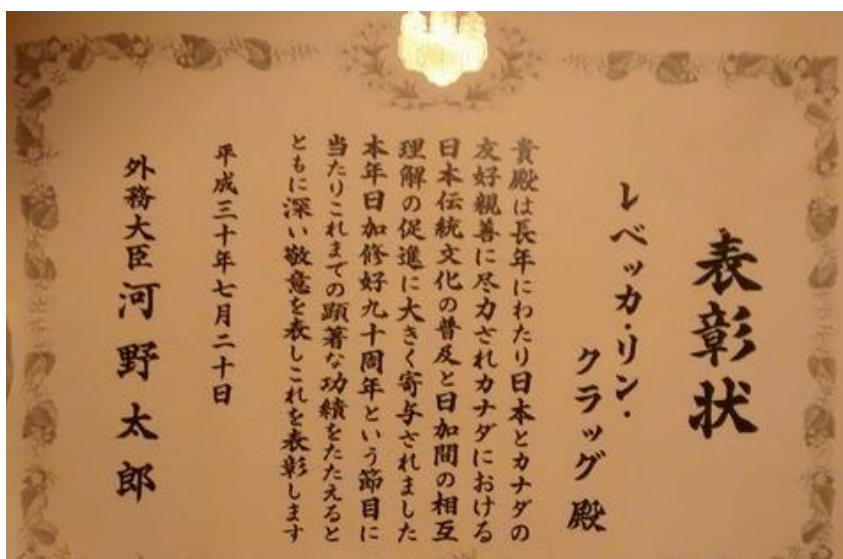 表彰状
レベッカ・リン・
クラッグ 殿
貴殿は長年にわたり日本とカナダの
友好親善に尽力されカナダにおける
日本伝統文化の普及と日加間の相互
理解の促進に大きく寄与されました
本年日加修好九十周年という節目に
当たりこれまでの顕著な功績をたたえると
ともに深い敬意を表しこれを表彰します
平成三十年七月二十日
外務大臣 河野太郎